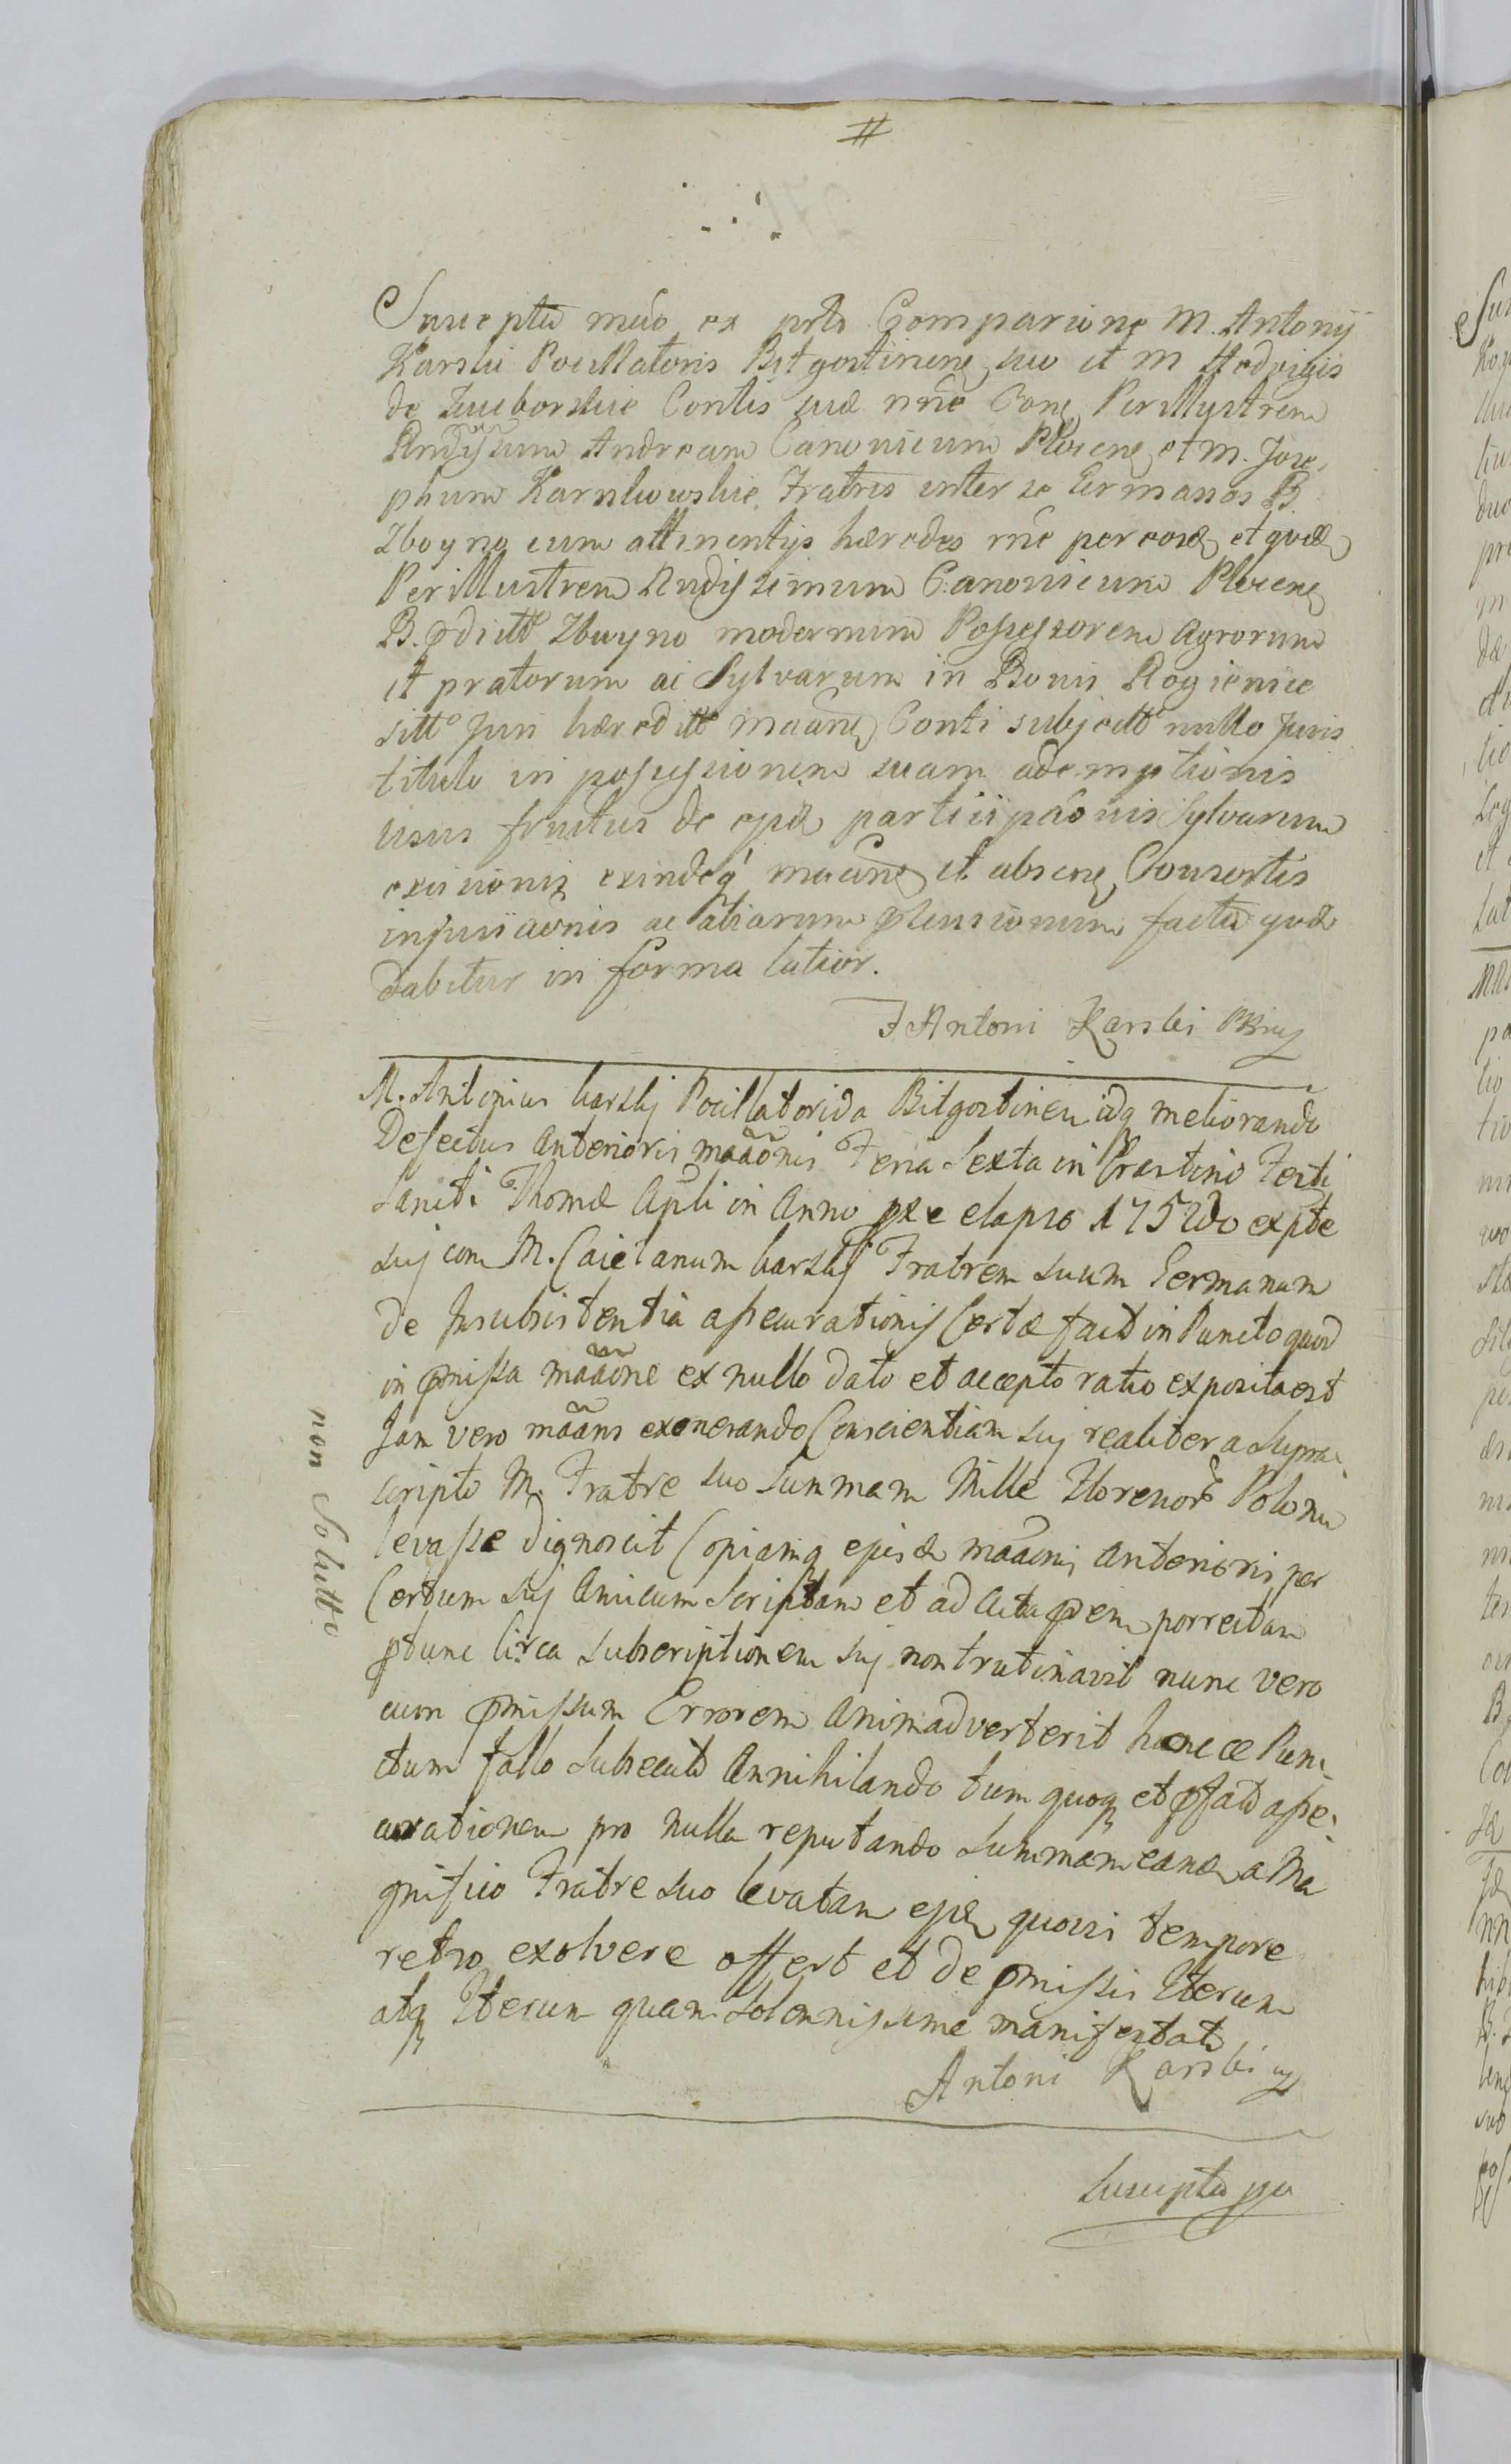 #
Suscepta mãõ ex prto Comparione M. Antonij
Karski Pocillatoris Bitgostinens suo et M Hedvigis
de Zuuborskie Contis suæ nñe Con Perillustrem
Rndissum Andream Canonicum Plocens et M. Jose,
phum Karnkowskie Fratres inter se Germanos B.
Zboyno cum attinentijs hæredes mẽ per eosd et quid
Perillustrem Rndissimum Canonicum Plocens
B. pditt Zbuyno modernum Possessorem Agrorum
et pratorum ac Sylvarum in Bonis Rogienice
sitto Juri hæreditt maans Conti subjectto nullo Juris
titulo in possessionem suam ademptionis
usus fructus de ejsd participaõnis Sylvarum
excisionis exindeq maans et absens Consortis
injuriaonis ac aliarum ptensionum facta quæ
dabitur in forma latior.
J Antoni Karski PB mp
M. Antonius Karskj Pocillatorida Bitgostinen idq meliorando
Defectus anterioris mãaõnis Feria Sexta in Crastino Festi
Sancti Thomæ Apli in Anno præelapso 1752do expte
suj con M. Caietanum Karskj Fratrem suum Germanum
de Insubsistentia assecurationis Certæ fact in Puncto quod
in pmissa mãaone ex nullo dato et accepto ratio exposita est
Jam vero mãans exonerando Conscientiam suj realiter a supra,
scripto M. Fratre suo Summam Mille Florenor Polonu
levasse dignoscit Copiamq ejusd mãaonis anterioris per
Certum suj Amicum Scriptam et ad Acta psen porrectam
ptunc circa subscriptionem suj non trutinavit nunc vero
cum pmissum Errorem animadverterit huncce Pun,
ctum fallo subsecuto Annihilando tum quoq et pfato asse,
curationem pro nulla reputando Summam eand a Ma
gnifico Fratre suo levatam ejsd quovis tempore
retro exolvere offert et de pmissis Iterum
atq Iterum quam solennissime manifestat
Antoni Karski mp
non Solutt
Suscepta pa